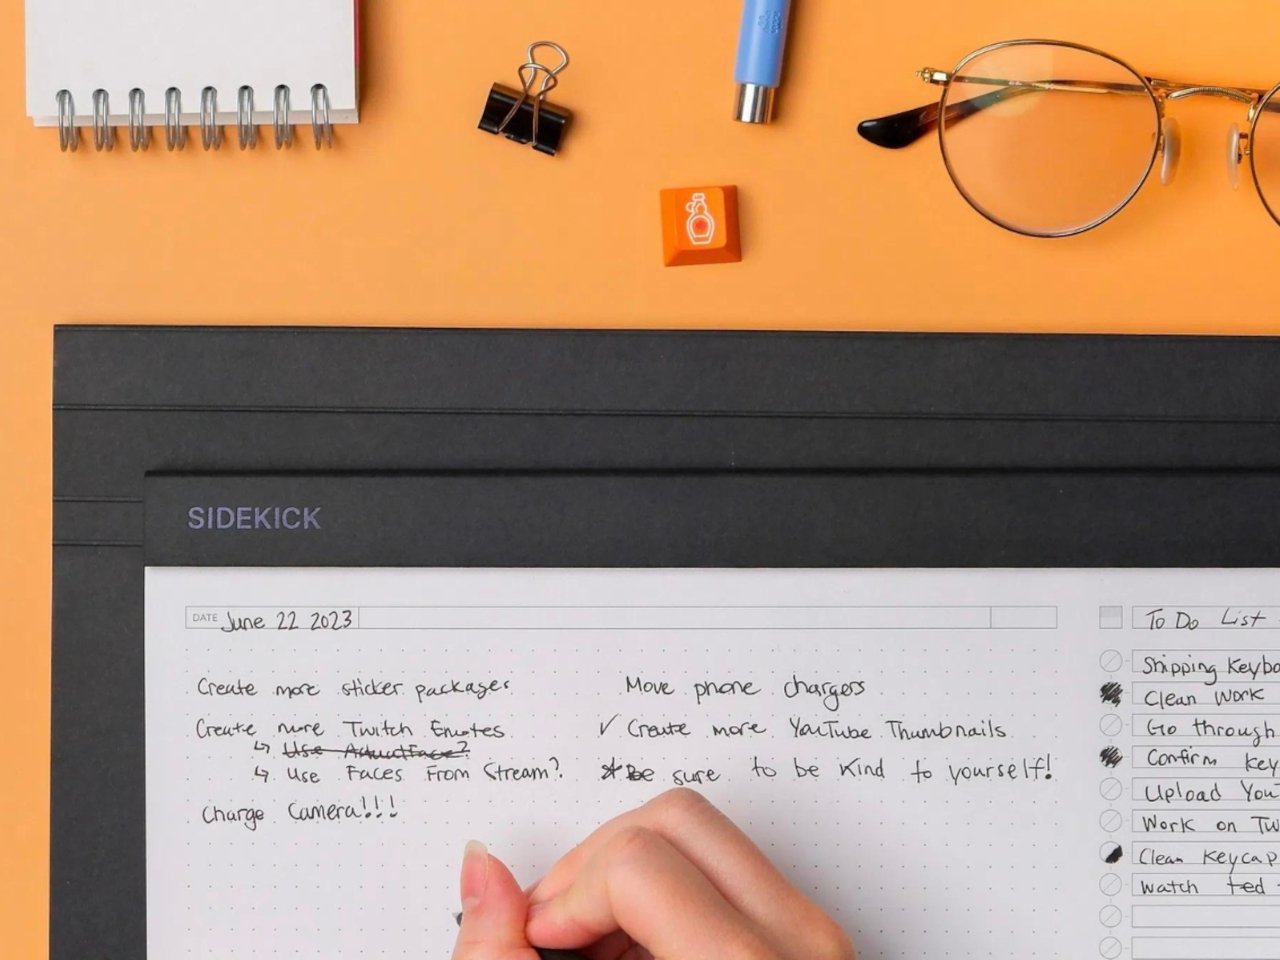 SIDEKICK
DATE June 22 2023
Create more sticker packages
Create more Twitch Emotes
↳ Use Actual Face?
↳ Use Faces From Stream?
Charge Camera!!!
Move phone chargers
✓ Create more YouTube Thumbnails
* Be sure to be Kind to yourself!
To Do List
Shipping Keybo
Clean Work
Go through
Confirm Key
Upload You
Work on Tw
Clean Keycap
Watch ted